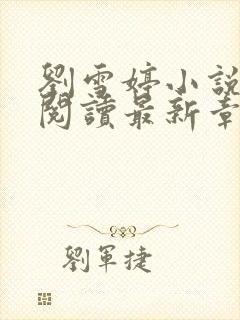 劉雪婷小說
閱讀最新章
劉軍捷